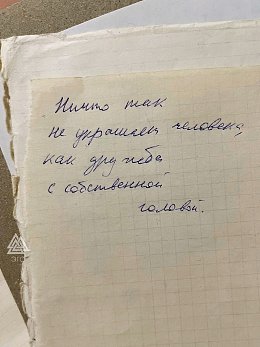 Ничто так
не украшает человека,
как дружба
с собственной
головой.
ЭГО